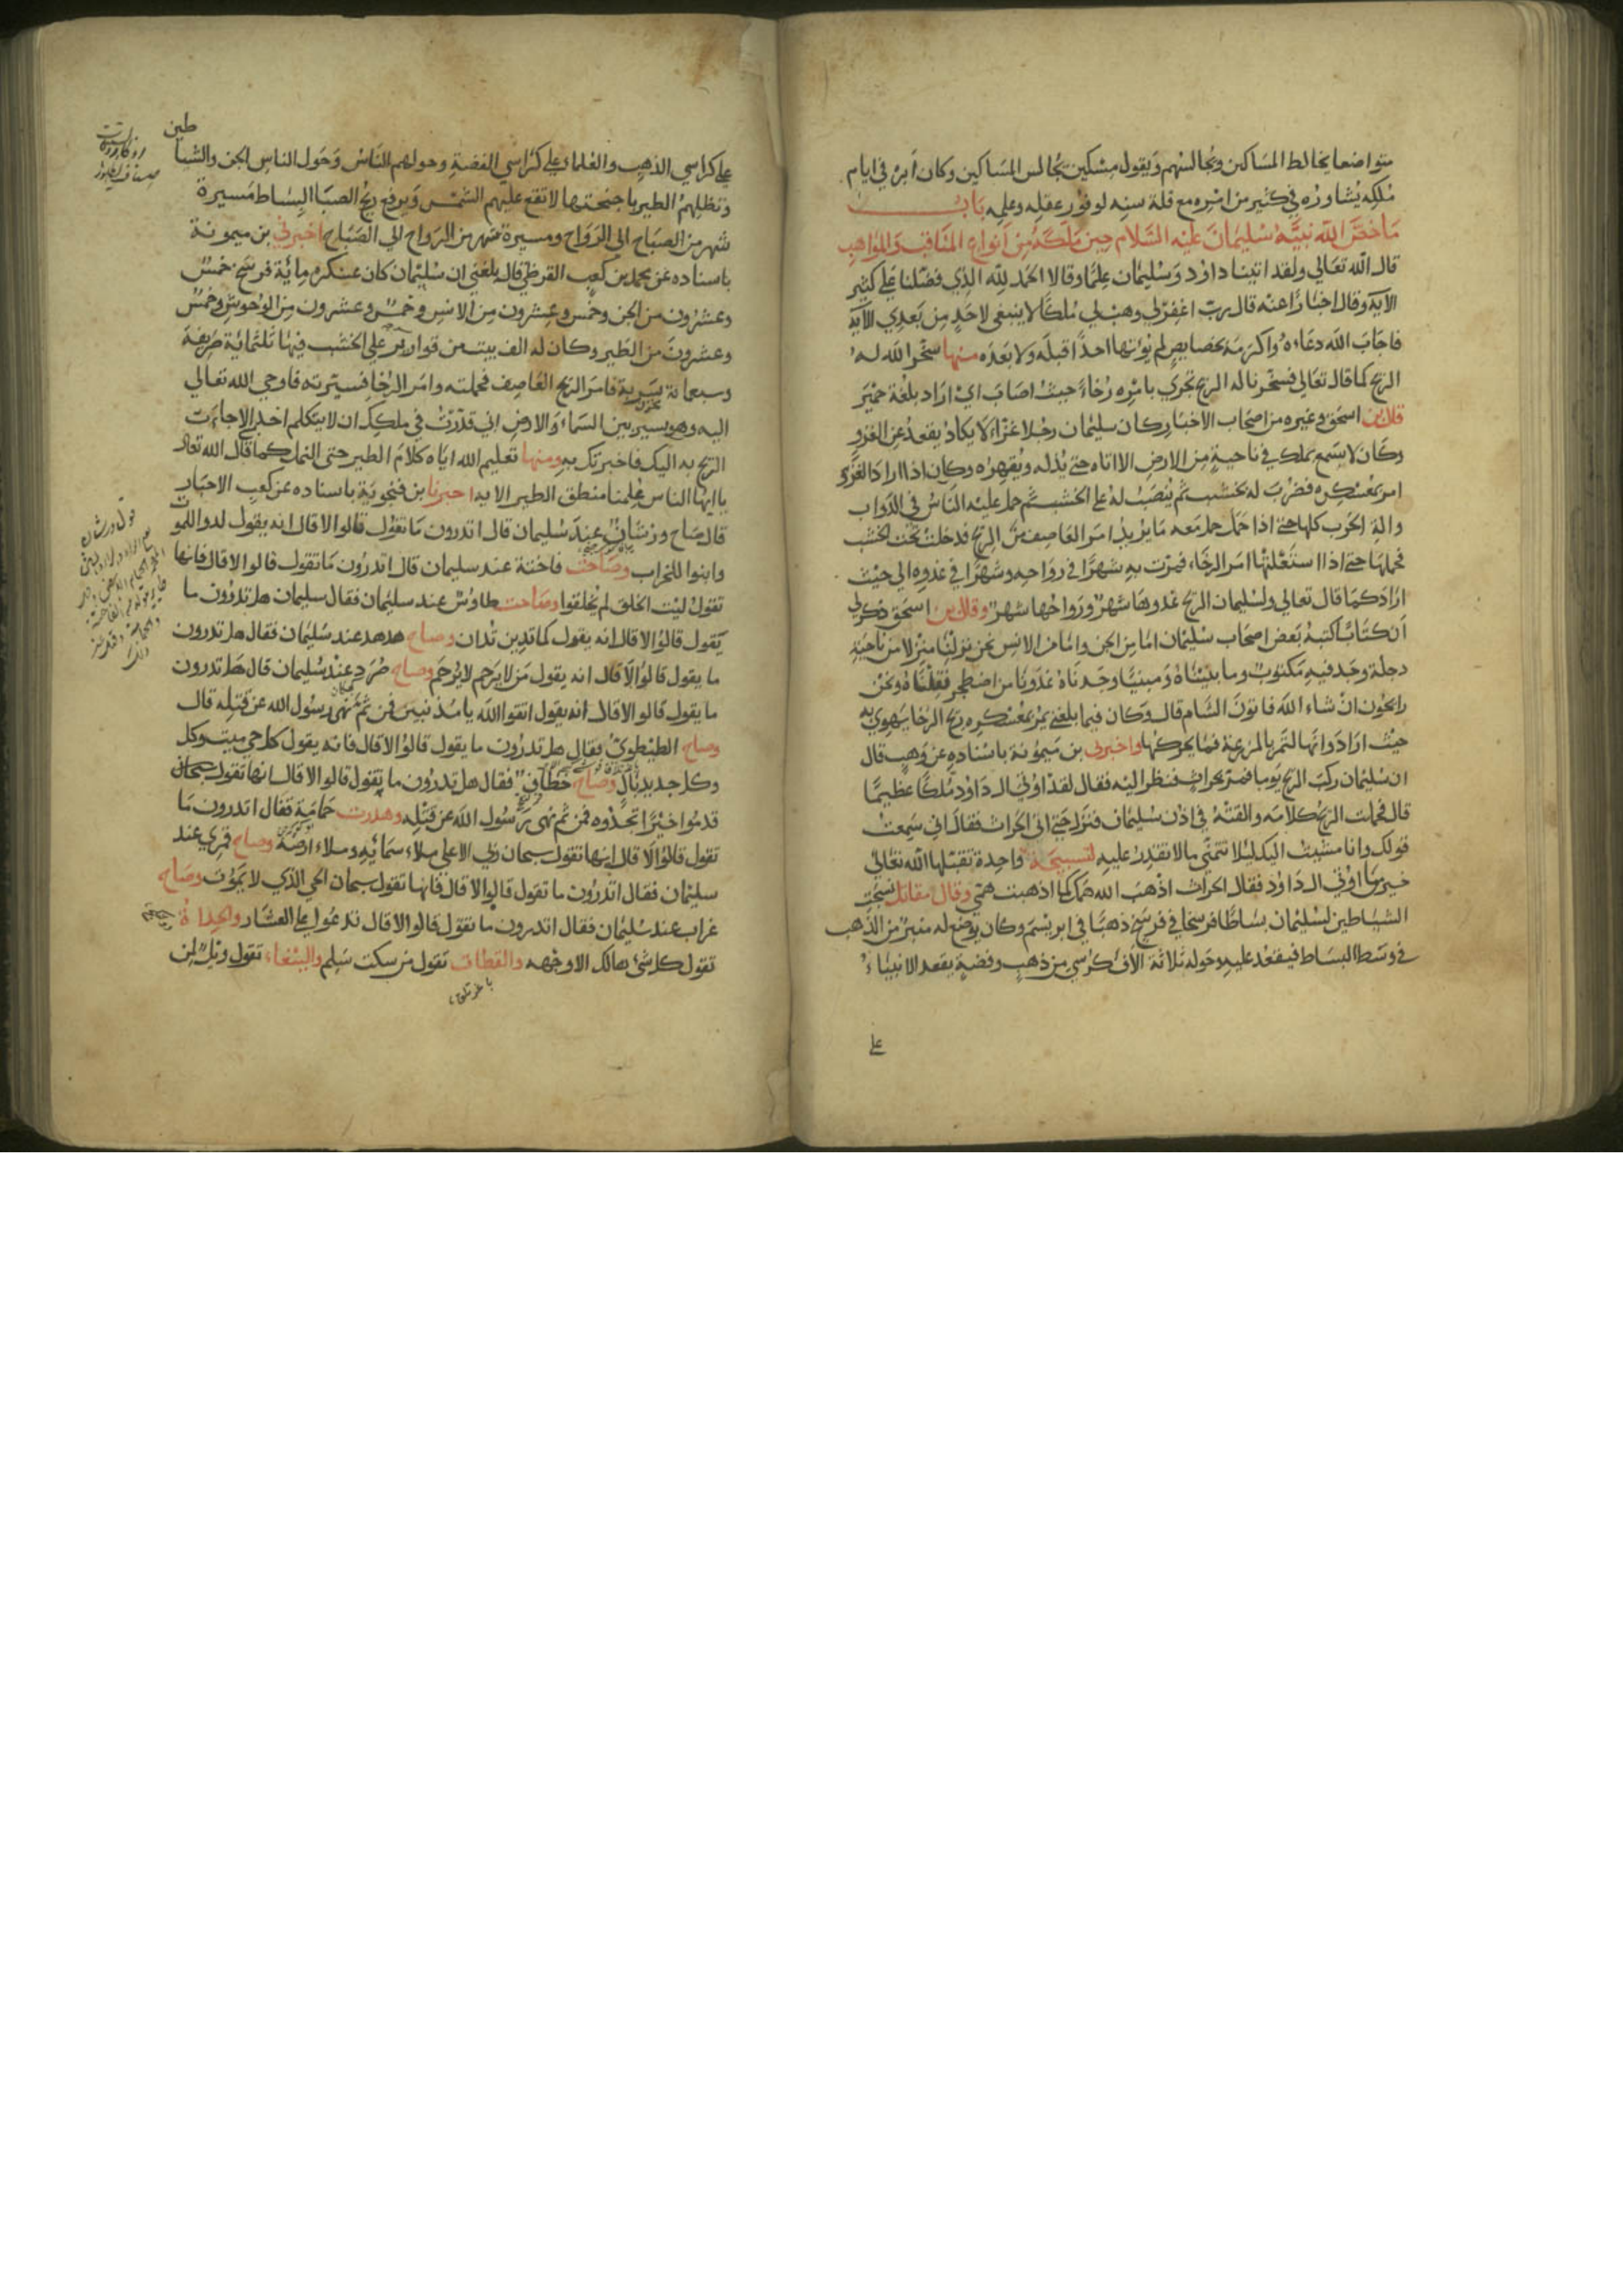 متواضعا يخالط المساكين ويجالسهم ويقول مسكين يجالس المساكين وكان ابوه في ايام
ملكه يشاوره في كثير من امره مع قلة سنه لوفور عقله وعلمه باب
ما خص الله نبيه سليمان عليه السلام حين ملكه من انواع المناقب والمواهب
قال الله تعالي ولقد اتينا داود وسليمان علما وقالا الحمد لله الذي فضلنا علي كثير
الاية وقال اخبارا عنه قال رب اغفر لي وهب لي ملكا لا ينبغي لاحد من بعدي الاية
فاجاب الله دعاءه واكرمه بخصايص لم يؤتها احدا قبله ولا بعده منها سخر الله له
الريح كما قال تعالي فسخرنا له الريح تجري بامره رخاء حيث اصاب اي اراد بلغة حمير
قال بن اسحق وغيره من اصحاب الاخبار كان سليمان رجلا غزاء لا يكاد يقعد عن الغزو
وكان لا يسمع بملك في ناحية من الارض الا اتاه حتي يذله ويقهره وكان اذا اراد الغزو
امر بمعسكره فضرب له بخشب ثم ينصب له علي الخشب ثم حمل عليه الناس في الدواب
والة الحرب كلها حتي اذا حمل حمل معه ما يريد امر العاصف من الريح فدخلت تحت الخشب
فحملتها حتي اذا استقلتها امر الرخاء فمرت به شهرا في رواحه وشهرا في غدوه الي حيث
اراد كما قال تعالي ولسليمان الريح غدوها شهر ورواحها شهر وقال بن اسحق ذكر لي
ان كتابا كتبه بعض اصحاب سليمان اما من الجن واما من الانس نحن نزلنا منزلا من ناحية
دجلة وجد فيه مكتوب وما بنيناه ومبنيا وجدناه غدونا من اصطخر فقلناه ونحن
رايحون ان شاء الله فاتون الشام قال وكان فيما بلغني يمر بمعسكره ريح الرخا يهوي به
حيث اراد وانها لتمر بالمزرعة فما يحركها واخبرني بن ميمونة باسناده عن وهب قال
ان سليمان ركب الريح يوما فمر بحراث فنظر اليه فقال لقد اوتي ال داود ملكا عظيما
قال فحملت الريح كلامه والقته في اذن سليمان فنزل حتي اتي الحراث فقال اني سمعت
قولك وانا مشيت اليك ليلا تتمني ما لا تقدر عليه لتسبيحة واحدة تقبلها الله تعالي
خير مما اوتي ال داود فقال الحراث اذهب الله همك كما اذهبت همي وقال مقاتل نسجت
الشياطين لسليمان بساطا فرسخا في فرسخ ذهبا في ابريسم وكان يوضع له منبر من الذهب
في وسط البساط فيقعد عليه وحوله ثلاثة الاف كرسي من ذهب وفضة يقعد الانبياء
علي
علي كراسي الذهب والعلماء علي كراسي الفضة وحولهم الناس وحول الناس الجن والشياطين
وتظلهم الطير باجنحتها لا تقع عليهم الشمس ويرفع ريح الصبا البساط مسيرة
شهر من الصباح الي الرواح ومسيرة شهر من الرواح الي الصباح اخبرني بن ميمونة
باسناده عن محمد بن كعب القرظي قال بلغني ان سليمان كان عسكره مائة فرسخ خمس
وعشرون من الجن وخمس وعشرون من الانس وخمس وعشرون من الوحوش وخمس
وعشرون من الطير وكان له الف بيت من قوارير علي الخشب فيها ثلثمائة صريحة
وسبعمائة سرية فامر الريح العاصف فحملته وامر الرخا فسيرته فاوحي الله تعالي
اليه وهو يسير بين السماء والارض اني قد زدت في ملكك ان لا يتكلم احد الا جاءت
الريح به اليك فاخبرتك به ومنها تعليم الله اياه كلام الطير حتي النمل كما قال الله تعالي
يا ايها الناس علمنا منطق الطير الاية اخبرنا بن فنجوية باسناده عن كعب الاحبار
قال صاح ورشان عند سليمان قال اتدرون ما تقول قالوا لا قال انه يقول لدوا للموت
وابنوا للخراب وصاحت فاختة عند سليمان قال اتدرون ما تقول قالوا لا قال فانها
تقول ليت الخلق لم يخلقوا وصاحت طاوس عند سليمان فقال سليمان هل تدرون ما
يقول قالوا لا قال انه يقول كما تدين تدان وصاح هدهد عند سليمان فقال هل تدرون
ما يقول قالوا لا قال انه يقول من لا يرحم لا يرحم وصاح صرد عند سليمان قال هل تدرون
ما يقول قالوا لا قال انه يقول اتقوا الله يا مذنبين فمن ثم نهي رسول الله عن قتله قال
وصاح الطيطوي فقال هل تدرون ما يقول قالوا لا قال فانه يقول كل حي ميت وكل
وكل جديد بال وصاح خطاف فقال هل تدرون ما يقول قالوا لا قال انها تقول
قدموا خيرا تجدوه فمن ثم نهي رسول الله عن قتله وهدرت حمامة فقال اتدرون ما
تقول قالوا لا قال انها تقول سبحان ربي الاعلي ملاء سمائه وملاء ارضه وصاح قمري عند
سليمان فقال اتدرون ما تقول قالوا لا قال فانها تقول سبحان الحي الذي لا يموت وصاح
غراب عند سليمان فقال اتدرون ما تقول قالوا لا قال تدعوا علي العشار والحداة
تقول كل شئ هالك الا وجهه والقطاة تقول من سكت سلم والببغاء تقول ويل لمن